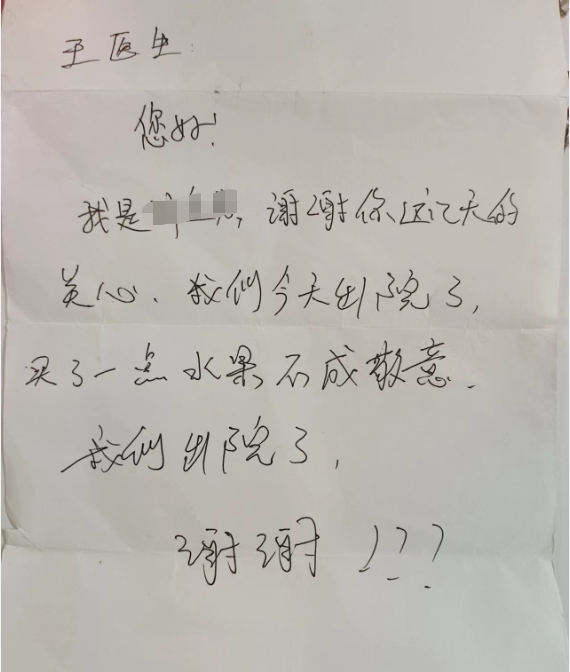 王医生:
您好!
我是 谢谢你这几天的
关心、我们今天出院了,
买了一点水果不成敬意.
我们出院了,
谢谢!??